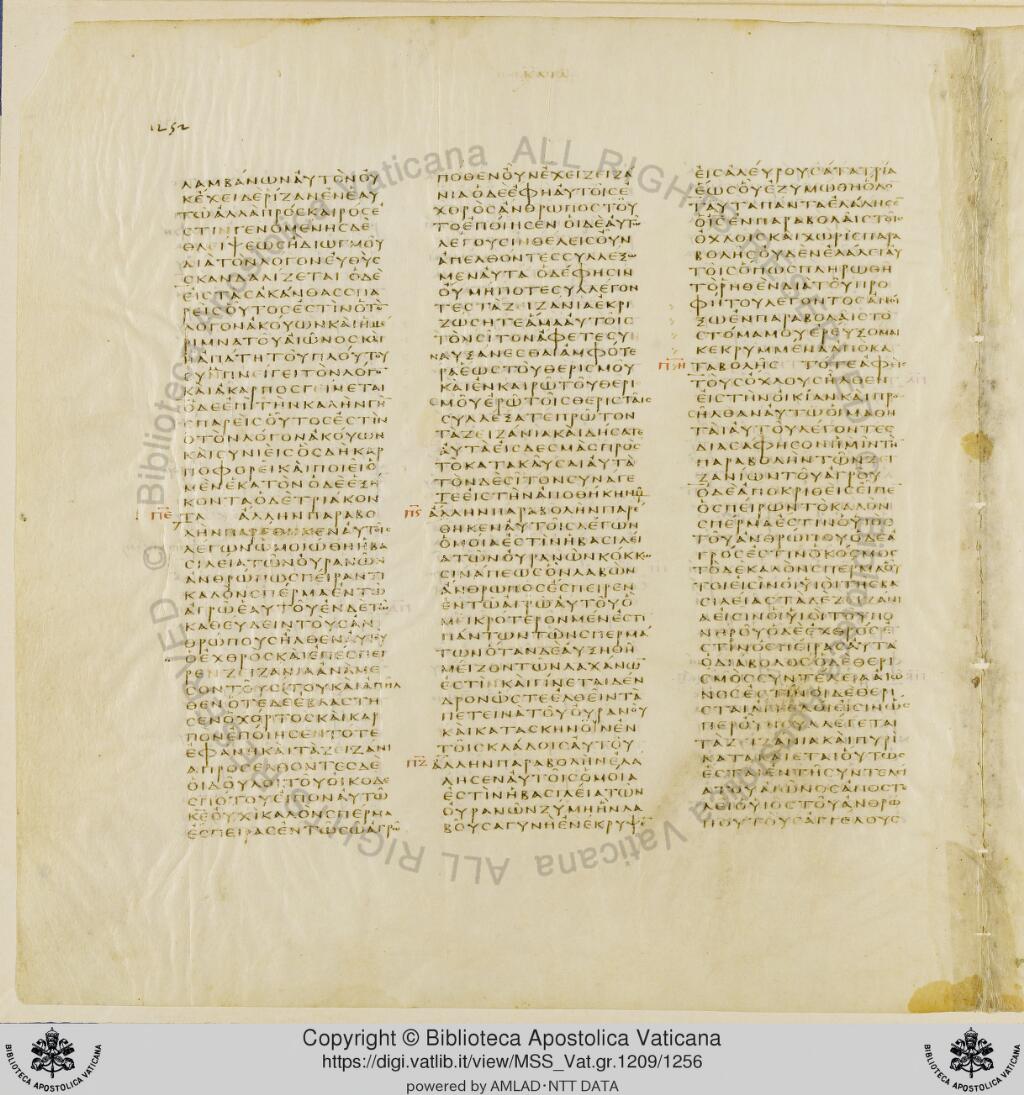 1252
ΛΑΜΒΑΝΩΝΑΥΤΟΝΟΥ
ΚΕΧΕΙΔΕΡΙΖΑΝΕΝΕΑΥ
ΤΩΑΛΛΑΠΡΟϹΚΑΙΡΟϹΕ
ϹΤΙΝΓΕΝΟΜΕΝΗϹΔΕ
ΘΛΕΙΨΕΩϹΗΔΙΩΓΜΟΥ
ΔΙΑΤΟΝΛΟΓΟΝΕΥΘΥϹ
ϹΚΑΝΔΑΛΙΖΕΤΑΙ ΟΔΕ
ΕΙϹΤΑϹΑΚΑΝΘΑϹϹΠΑ
ΡΕΙϹΟΥΤΟϹΕϹΤΙΝΟΤΟ̅
ΛΟΓΟΝΑΚΟΥΩΝΚΑΙΗΜΕ
ΡΙΜΝΑΤΟΥΑΙΩΝΟϹΚΑΙ
ΗΑΠΑΤΗΤΟΥΠΛΟΥΤΟΥ
ϹΥΝΠΝΕΙΓΕΙΤΟΝΛΟΓΟ̅
ΚΑΙΑΚΑΡΠΟϹΓΕΙΝΕΤΑΙ
ΟΔΕΕΠΙΤΗΝΚΑΛΗΝΓΗ̅
ϹΠΑΡΕΙϹΟΥΤΟϹΕϹΤΙΝ
ΟΤΟΝΛΟΓΟΝΑΚΟΥΩΝ
ΚΑΙϹΥΝΙΕΙϹΟϹΔΗΚΑΡ
ΠΟΦΟΡΕΙΚΑΙΠΟΙΕΙΟ
ΜΕΝΕΚΑΤΟΝΟΔΕΕΞΗ
ΚΟΝΤΑΟΔΕΤΡΙΑΚΟΝ
ΠΕ ΤΑ ΑΛΛΗΝΠΑΡΑΒΟ
ΛΗΝΠΑΡΕΘΗΚΕΝΑΥΤΟΙϹ
ΛΕΓΩΝΩΜΟΙΩΘΗΗΒΑ
ϹΙΛΕΙΑΤΩΝΟΥΡΑΝΩΝ
ΑΝΘΡΩΠΩϹΠΕΙΡΑΝΤΙ
ΚΑΛΟΝϹΠΕΡΜΑΕΝΤΩ
ΑΓΡΩΕΑΥΤΟΥΕΝΔΕΤΩ
ΚΑΘΕΥΔΕΙΝΤΟΥϹΑΝ
ΘΡΩΠΟΥϹΗΛΘΕΝΑΥΤΟΥ
ΟΕΧΘΡΟϹΚΑΙΕΠΕϹΠΕΙ
ΡΕΝΖΙΖΑΝΙΑΑΝΑΜΕ
ϹΟΝΤΟΥϹΙΤΟΥΚΑΙΑΠΗΛ
ΘΕΝΟΤΕΔΕΕΒΛΑϹΤΗ
ϹΕΝΟΧΟΡΤΟϹΚΑΙΚΑΡ
ΠΟΝΕΠΟΙΗϹΕΝΤΟΤΕ
ΕΦΑΝΗΚΑΙΤΑΖΕΙΖΑΝΙ
ΑΠΡΟϹΕΛΘΟΝΤΕϹΔΕ
ΟΙΔΟΥΛΟΙΤΟΥΟΙΚΟΔΕ
ϹΠΟΤΟΥΕΙΠΟΝΑΥΤΩ
ΚΕΟΥΧΙΚΑΛΟΝϹΠΕΡΜΑ
ΕϹΠΕΙΡΑϹΕΝΤΩϹΩΑΓΡΩ
ΠΟΘΕΝΟΥΝΕΧΕΙΖΙΖΑ
ΝΙΑΟΔΕΕΦΗΑΥΤΟΙϹΕ
ΧΘΡΟϹΑΝΘΡΩΠΟϹΤΟΥ
ΤΟΕΠΟΙΗϹΕΝ ΟΙΔΕΑΥΤΩ
ΛΕΓΟΥϹΙΝΘΕΛΕΙϹΟΥΝ
ΑΠΕΛΘΟΝΤΕϹϹΥΛΛΕΞΩ
ΜΕΝΑΥΤΑ ΟΔΕΦΗϹΙΝ
ΟΥ ΜΗΠΟΤΕϹΥΛΛΕΓΟΝ
ΤΕϹΤΑΖΙΖΑΝΙΑΕΚΡΙ
ΖΩϹΗΤΕΑΜΑΑΥΤΟΙϹ
ΤΟΝϹΙΤΟΝΑΦΕΤΕϹΥ
ΝΑΥΞΑΝΕϹΘΑΙΑΜΦΟΤΕ
ΡΑΕΩϹΤΟΥΘΕΡΙϹΜΟΥ
ΚΑΙΕΝΚΑΙΡΩΤΟΥΘΕΡΙ
ϹΜΟΥΕΡΩΤΟΙϹΘΕΡΙϹΤΑΙϹ
ϹΥΛΛΕΞΑΤΕΠΡΩΤΟΝ
ΤΑΖΕΙΖΑΝΙΑΚΑΙΔΗϹΑΤΕ
ΑΥΤΑΕΙϹΔΕϹΜΑϹΠΡΟϹ
ΤΟΚΑΤΑΚΑΥϹΑΙΑΥΤΑ
ΤΟΝΔΕϹΙΤΟΝϹΥΝΑΓΕ
ΤΕΕΙϹΤΗΝΑΠΟΘΗΚΗΝΜΟΥ
Πϛ ΑΛΛΗΝΠΑΡΑΒΟΛΗΝΠΑΡΕ
ΘΗΚΕΝΑΥΤΟΙϹΛΕΓΩΝ
ΟΜΟΙΑΕϹΤΙΝΗΒΑϹΙΛΕΙ
ΑΤΩΝΟΥΡΑΝΩΝΚΟΚΚΩ
ϹΙΝΑΠΕΩϹΟΝΛΑΒΩΝ
ΑΝΘΡΩΠΟϹΕϹΠΕΙΡΕΝ
ΕΝΤΩΑΓΡΩΑΥΤΟΥΟ
ΜΕΙΚΡΟΤΕΡΟΝΜΕΝΕϹΤΙ
ΠΑΝΤΩΝΤΩΝϹΠΕΡΜΑ
ΤΩΝΟΤΑΝΔΕΑΥΞΗΘΗ
ΜΕΙΖΟΝΤΩΝΛΑΧΑΝΩ̅
ΕϹΤΙΝΚΑΙΓΙΝΕΤΑΙΔΕΝ
ΔΡΟΝΩϹΤΕΕΛΘΕΙΝΤΑ
ΠΕΤΕΙΝΑΤΟΥΟΥΡΑΝΟΥ
ΚΑΙΚΑΤΑϹΚΗΝΟΙΝΕΝ
ΤΟΙϹΚΛΑΔΟΙϹΑΥΤΟΥ
ΠΖ ΑΛΛΗΝΠΑΡΑΒΟΛΗΝΕΛΑ
ΛΗϹΕΝΑΥΤΟΙϹΟΜΟΙΑ
ΕϹΤΙΝΗΒΑϹΙΛΕΙΑΤΩΝ
ΟΥΡΑΝΩΝΖΥΜΗΗΝΛΑ
ΒΟΥϹΑΓΥΝΗΕΝΕΚΡΥΨΕ̅
ΕΙϹΑΛΕΥΡΟΥϹΑΤΑΤΡΙΑ
ΕΩϹΟΥΕΖΥΜΩΘΗΟΛΟ̅
ΤΑΥΤΑΠΑΝΤΑΕΛΑΛΗϹΕ
ΟΙϹΕΝΠΑΡΑΒΟΛΑΙϹΤΟΙϹ
ΟΧΛΟΙϹΚΑΙΧΩΡΙϹΠΑΡΑ
ΒΟΛΗϹΟΥΔΕΝΕΛΑΛΕΙΑΥ
ΤΟΙϹΟΠΩϹΠΛΗΡΩΘΗ
ΤΟΡΗΘΕΝΔΙΑΤΟΥΠΡΟ
ΦΗΤΟΥΛΕΓΟΝΤΟϹΑΝΟΙ
ΞΩΕΝΠΑΡΑΒΟΛΑΙϹΤΟ
ϹΤΟΜΑΜΟΥΕΡΕΥΞΟΜΑΙ
ΚΕΚΡΥΜΜΕΝΑΑΠΟΚΑ
ΠΗ ΤΑΒΟΛΗϹ ΤΟΤΕΑΦΕΙϹ
ΤΟΥϹΟΧΛΟΥϹΗΛΘΕΝ
ΕΙϹΤΗΝΟΙΚΙΑΝΚΑΙΠΡΟ
ϹΗΛΘΑΝΑΥΤΩΟΙΜΑΘΗ
ΤΑΙΑΥΤΟΥΛΕΓΟΝΤΕϹ
ΔΙΑϹΑΦΗϹΟΝΗΜΙΝΤΗ̅
ΠΑΡΑΒΟΛΗΝΤΩΝΖΙ
ΖΑΝΙΩΝΤΟΥΑΓΡΟΥ
ΟΔΕΑΠΟΚΡΙΘΕΙϹΕΙΠΕ
ΟϹΠΕΙΡΩΝΤΟΚΑΛΟΝ
ϹΠΕΡΜΑΕϹΤΙΝΟΥΙΟϹ
ΤΟΥΑΝΘΡΩΠΟΥΟΔΕΑ
ΓΡΟϹΕϹΤΙΝΟΚΟϹΜΟϹ
ΤΟΔΕΚΑΛΟΝϹΠΕΡΜΑΟΥ
ΤΟΙΕΙϹΙΝΟΙΥΙΟΙΤΗϹΒΑ
ϹΙΛΕΙΑϹΤΑΔΕΖΙΖΑΝΙ
ΑΕΙϹΙΝΟΙΥΙΟΙΤΟΥΠΟ
ΝΗΡΟΥΟΔΕΕΧΘΡΟϹΕ
ϹΤΙΝΟϹΠΕΙΡΑϹΑΥΤΑ
ΟΔΙΑΒΟΛΟϹΟΔΕΘΕΡΙ
ϹΜΟϹϹΥΝΤΕΛΕΙΑΑΙΩ
ΝΟϹΕϹΤΙΝΟΙΔΕΘΕΡΙ
ϹΤΑΙΑΓΓΕΛΟΙΕΙϹΙΝΩϹ
ΠΕΡΟΥΝϹΥΛΛΕΓΕΤΑΙ
ΤΑΖΙΖΑΝΙΑΚΑΙΠΥΡΙ
ΚΑΤΑΚΑΙΕΤΑΙΟΥΤΩϹ
ΕϹΤΑΙΕΝΤΗϹΥΝΤΕΛΕΙ
ΑΤΟΥΑΙΩΝΟϹΑΠΟϹΤΕ
ΛΕΙΟΥΙΟϹΤΟΥΑΝΘΡΩ
ΠΟΥΤΟΥϹΑΓΓΕΛΟΥϹ
© Biblioteca Apostolica Vaticana ALL RIGHTS RESERVED
Copyright © Biblioteca Apostolica Vaticana
https://digi.vatlib.it/view/MSS_Vat.gr.1209/1256
powered by AMLAD·NTT DATA
BIBLIOTECA APOSTOLICA VATICANA
BIBLIOTECA APOSTOLICA VATICANA